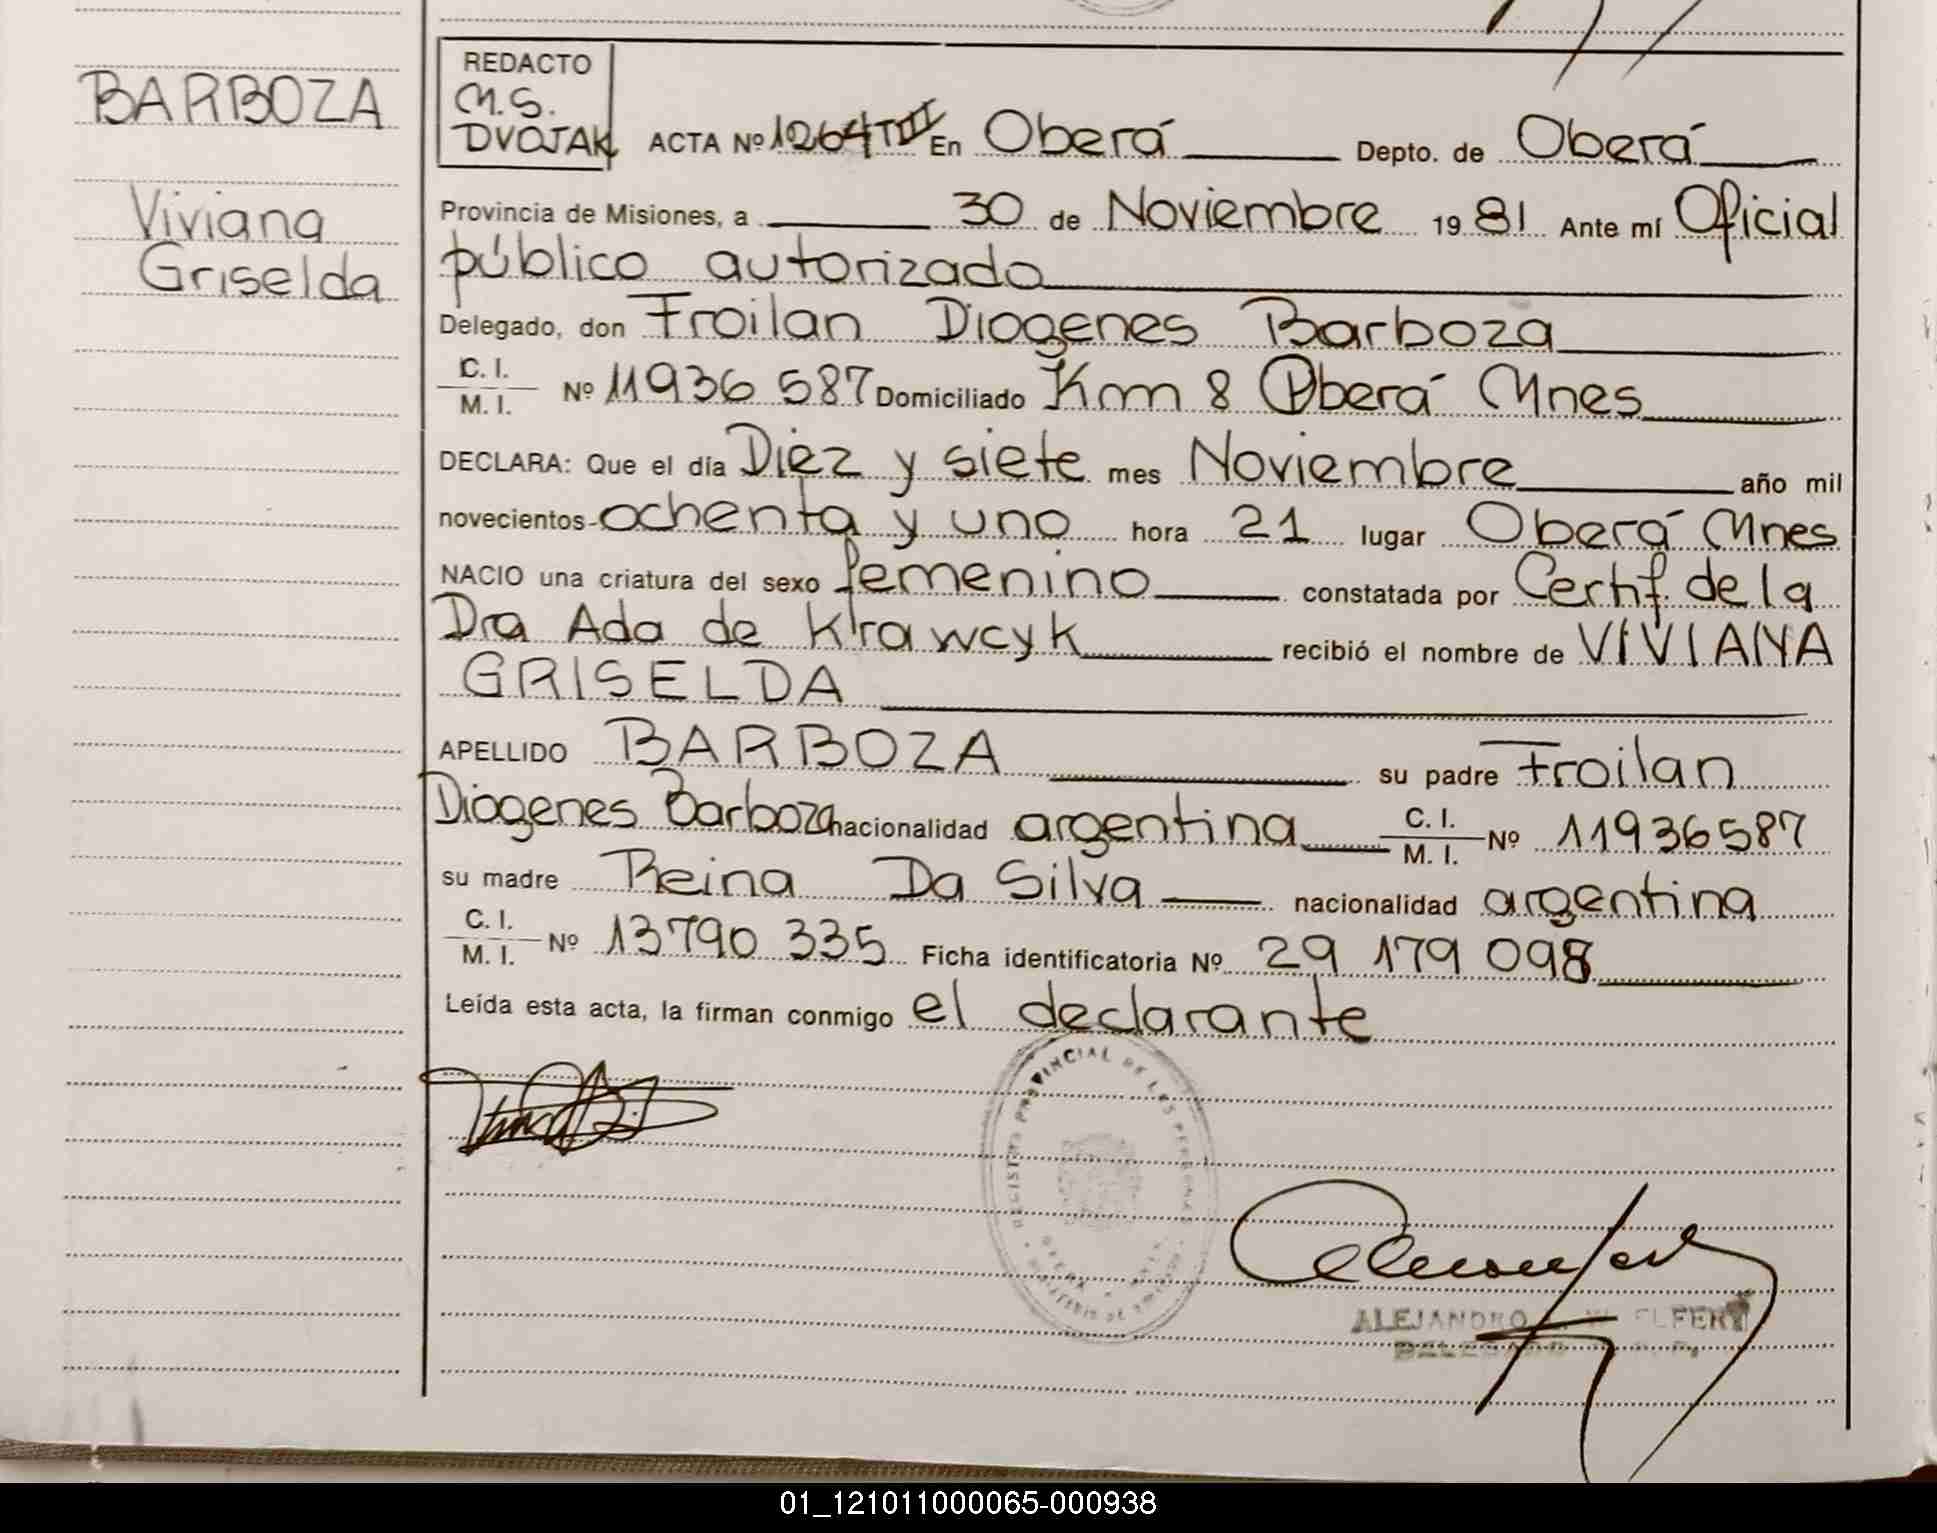 BARBOZA
Viviana
Griselda
REDACTO
M.S.
DVOJAK
ACTA Nº 1264 TIII En Oberá Depto. de Oberá
Provincia de Misiones, a 30 de Noviembre 1981 Ante mí Oficial
público autorizado
Delegado, don Froilan Diogenes Barboza
C. I.
M. I. Nº 11936 587 Domiciliado Km 8 Oberá Mnes
DECLARA: Que el día Diez y siete mes Noviembre año mil
novecientos ochenta y uno hora 21 lugar Oberá Mnes
NACIO una criatura del sexo femenino constatada por Certif. de la
Dra Ada de Krawcyk recibió el nombre de VIVIANA
GRISELDA
APELLIDO BARBOZA su padre Froilan
Diogenes Barboza nacionalidad argentina C. I.
M. I. Nº 11936587
su madre Reina Da Silva nacionalidad argentina
C. I.
M. I. Nº 13790 335 Ficha identificatoria Nº 29 179 098
Leída esta acta, la firman conmigo el declarante
REGISTRO PROVINCIAL DE LAS PERSONAS
OBERA
ALEJANDRO
DELEGADO
01_121011000065-000938